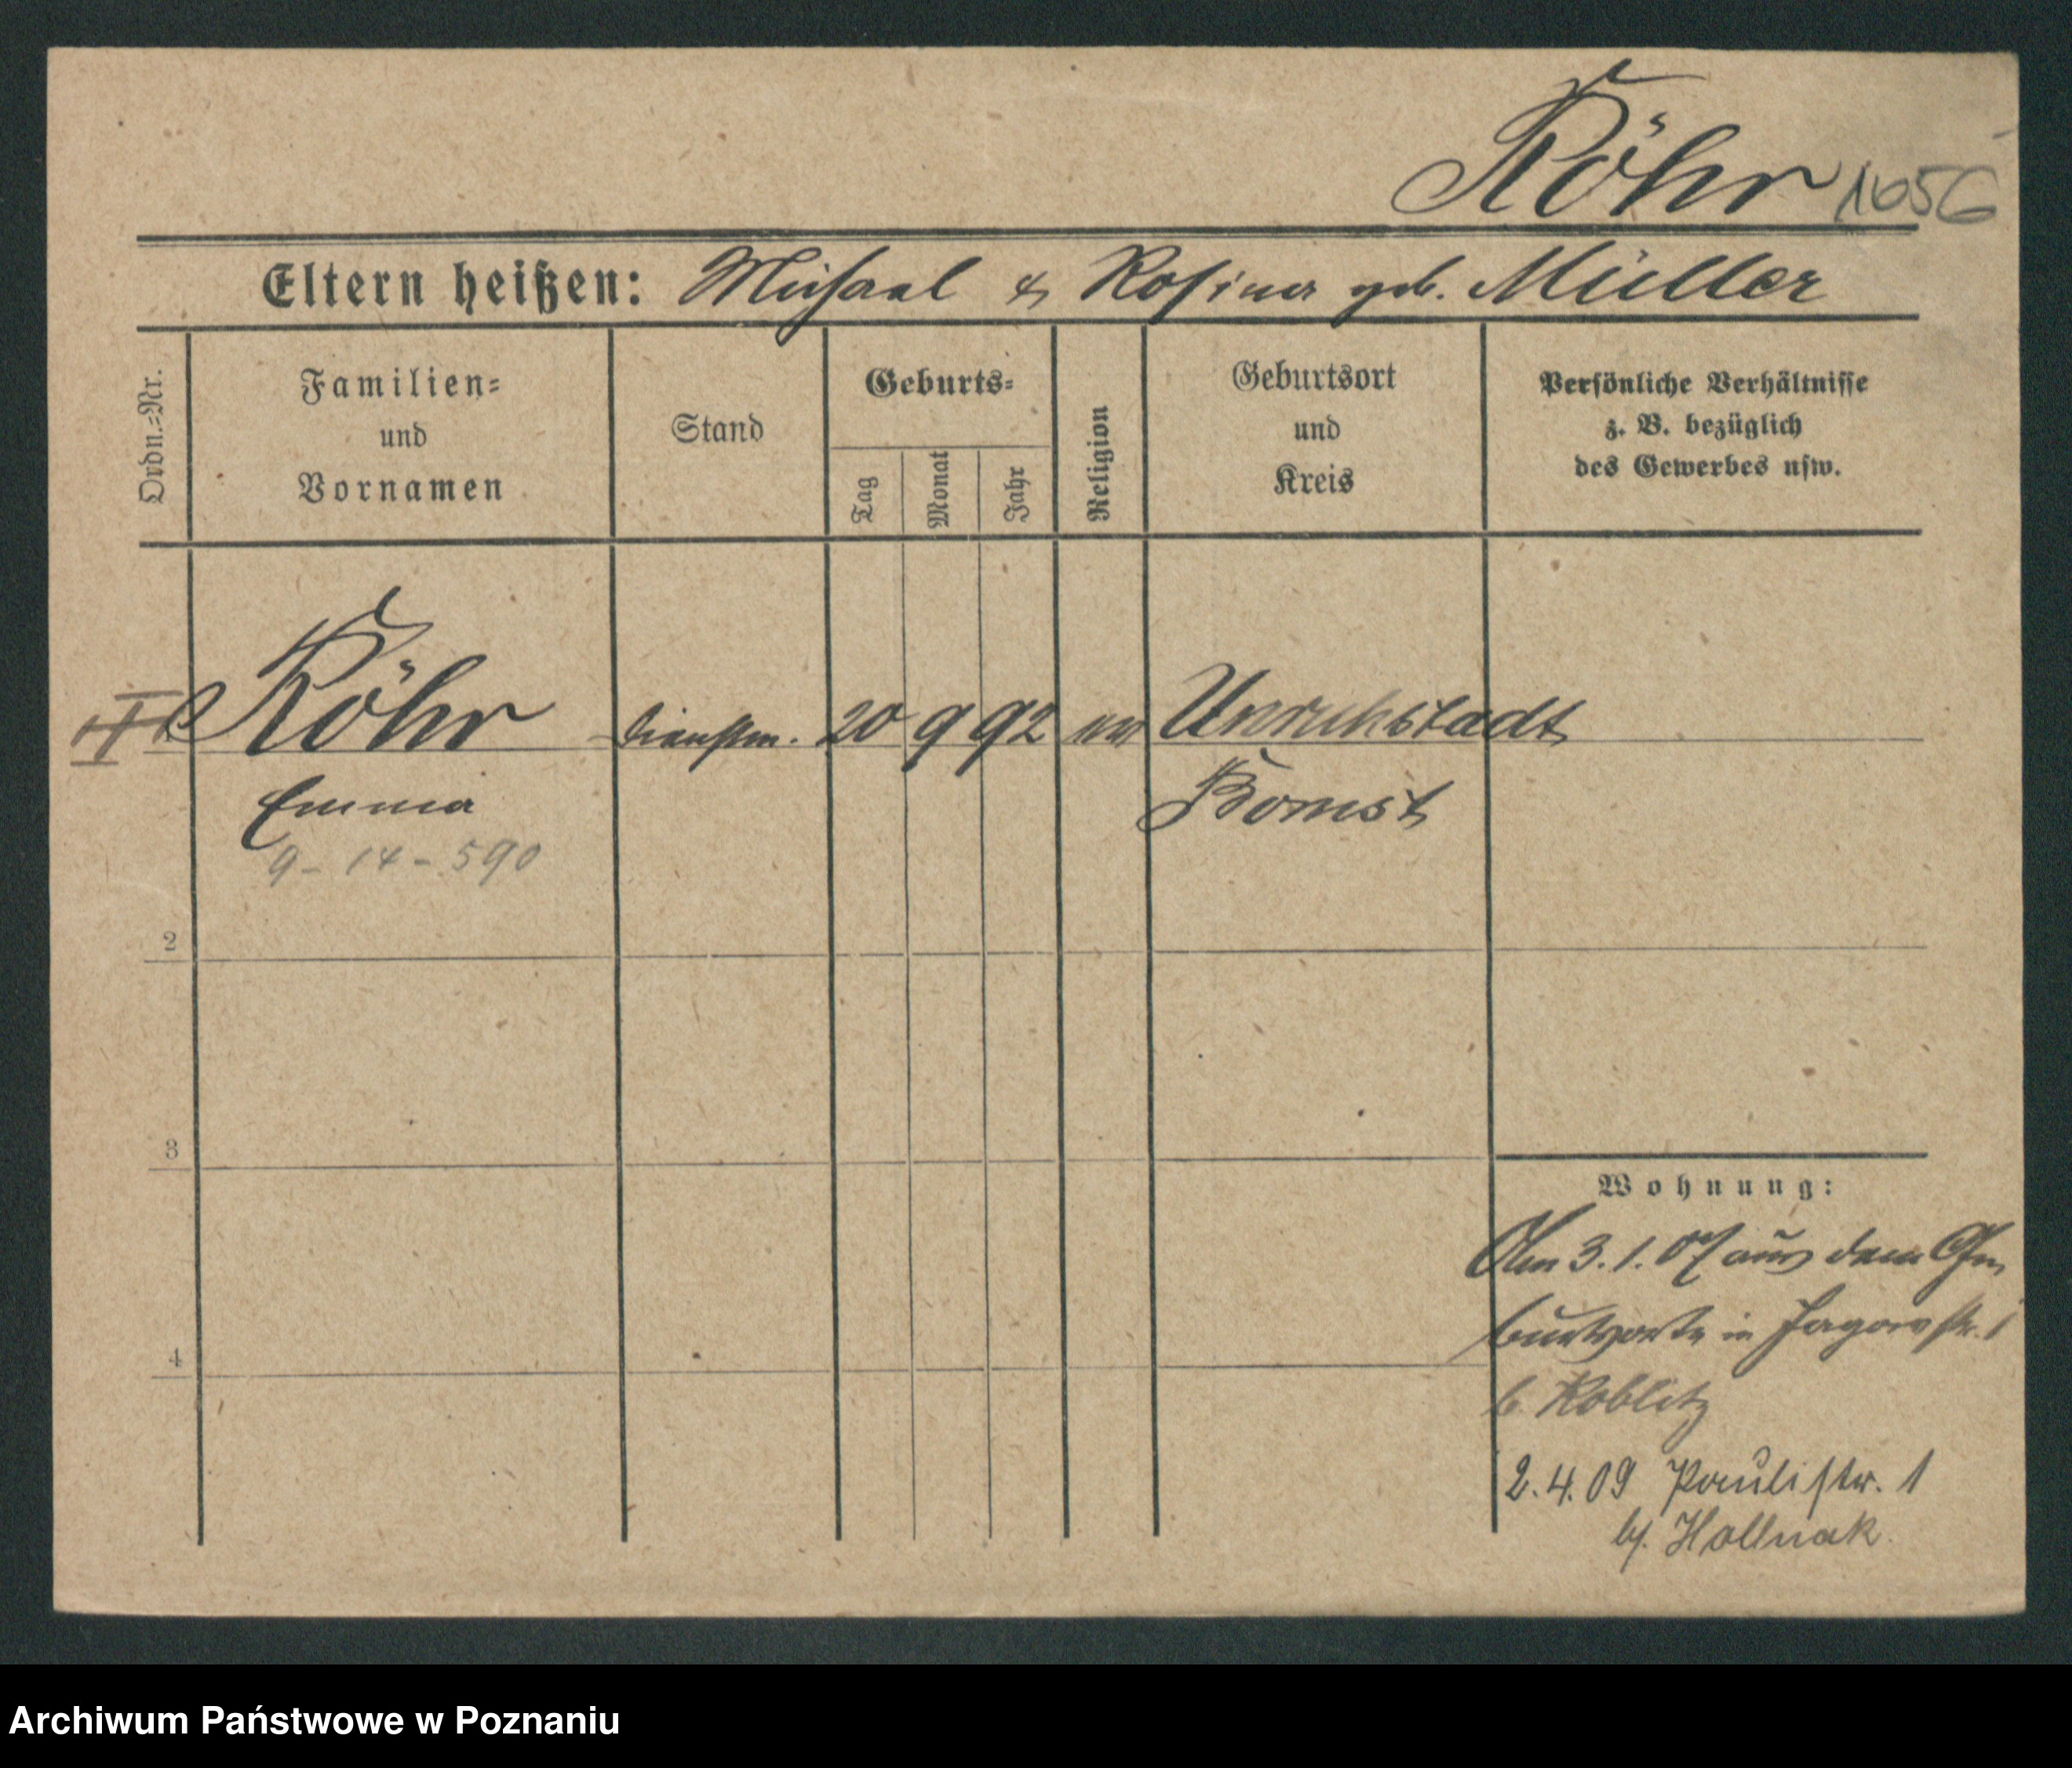 Röhr 1056
Eltern heißen: Michael & Rosina geb. Müller
Ordn.=Nr.
Familien= und Vornamen
Stand
Geburts=
Tag
Monat
Jahr
Religion
Geburtsort und Kreis
Persönliche Verhältnisse z. B. bezüglich des Gewerbes usw.
Röhr Dienstm. 20 9 92 ev Unruhstadt
Emma Bomst
9-14-590
2
3
4
Wohnung:
Am 3.1.07 aus dem Ge
burtsorte in Jagowstr. 1
b. Koblitz
2.4.09 Paulistr. 1
b/. Hollnak
Archiwum Państwowe w Poznaniu